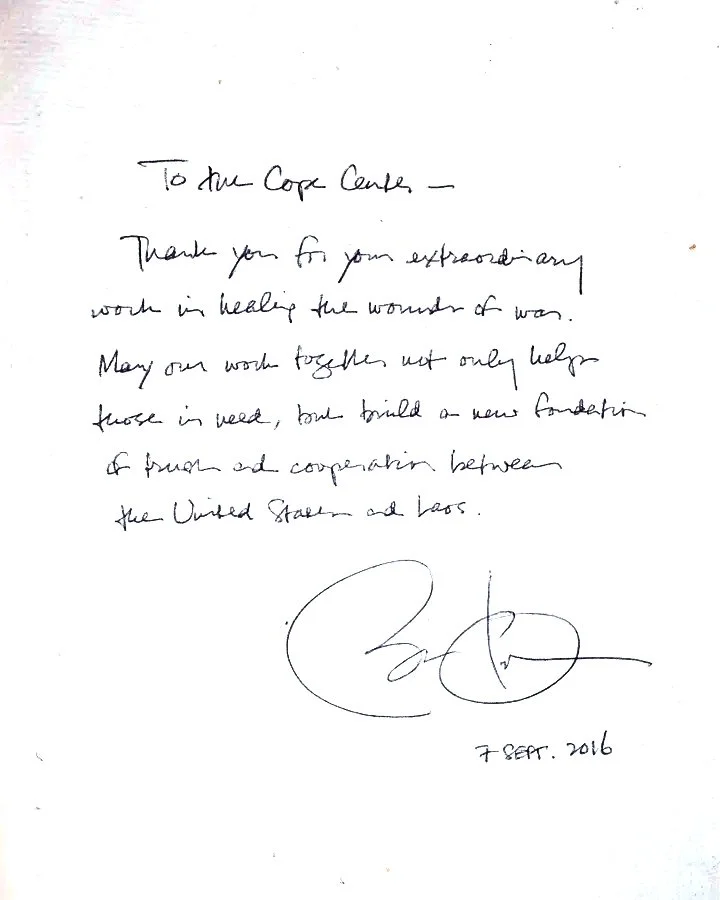 To the Cope Center —
Thank you for your extraordinary
work in healing the wounds of war.
May our work together not only help
those in need, but build a new foundation
of trust and cooperation between
the United States and Laos.
7 SEPT. 2016